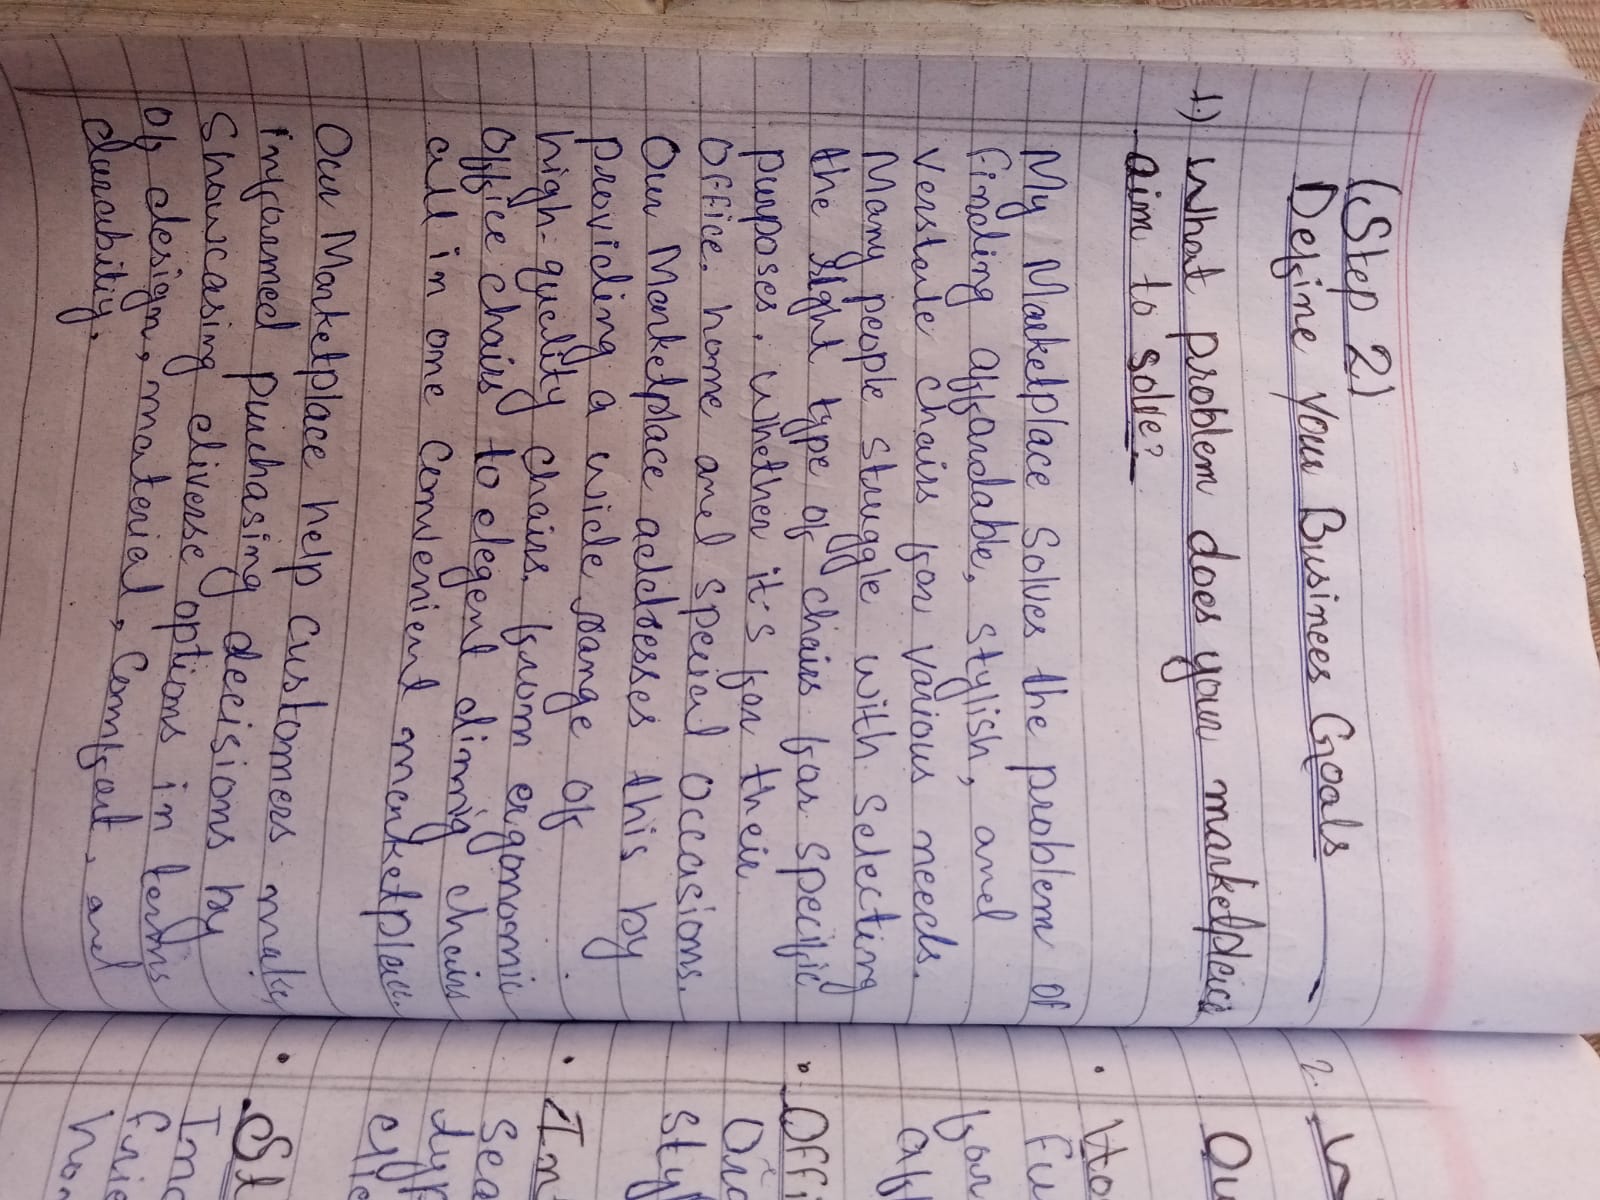 (Step 2)
Define your Businees Goals
1.) What problem does your marketplace
aim to solve?
My Marketplace solves the problem of
finding affordable, stylish, and
verstale chairs for various needs.
Many people struggle with selecting
the right type of chairs for specific
purposes, whether it's for their
office, home and special occasions.
Our Marketplace addresses this by
providing a wide range of
high-quality chairs, from ergonomic
office chairs to elegent dinnig chairs
all in one convenient marketplace.
Our Marketplace help customers make
informed purchasing decisions by
showcasing diverse options in terms
of design, material, comfort, and
durabitiy.
2. W
Ou
• Ho
Fu
for
aff
• Offi
Sty
• In
Sea
typ
Clie
• St
Inc
frie
hom